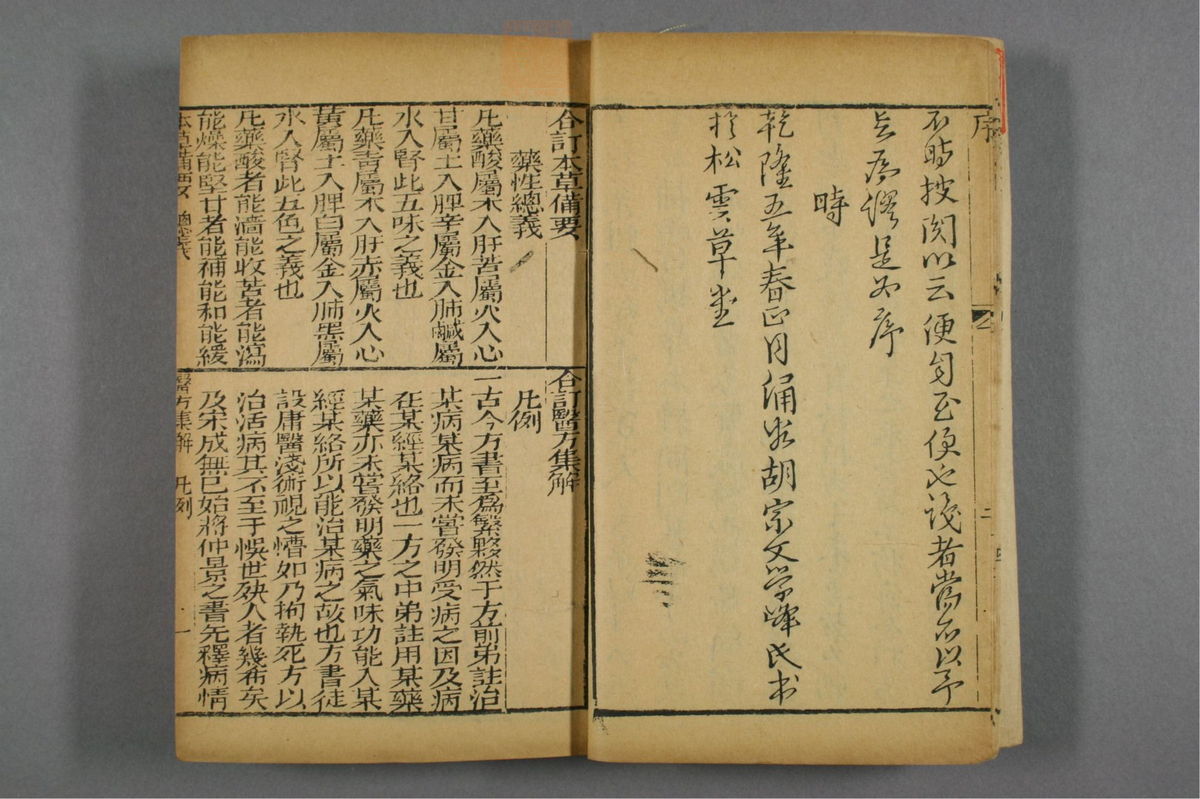 序
不時披閱以云便自至便也識者當不以予
言為謬是為序
時
乾隆五年春正月涌水胡宗文學峰氏书
於松雲草堂
二
合訂本草備要
藥性總義
凡藥酸屬木入肝苦屬火入心
甘屬土入脾辛屬金入肺鹹屬
水入腎此五味之義也
凡藥青屬木入肝赤屬火入心
黃屬土入脾白屬金入肺黑屬
水入腎此五色之義也
凡藥酸者能濇能收苦者能瀉
能燥能堅甘者能補能和能緩
本草備要 總義
合訂醫方集解
凡例
一古今方書至爲繁夥然于方前弟註治
某病某病而未嘗發明受病之因及病
在某經某絡也一方之中弟註用某藥
某藥亦未嘗發明藥之氣味功能入某
經某絡所以能治某病之故也方書徒
設庸醫淺術視之懵如乃拘執死方以
治活病其不至于悞世殃人者幾希矣
及宋成無已始將仲景之書先釋病情
醫方集解 凡例 一